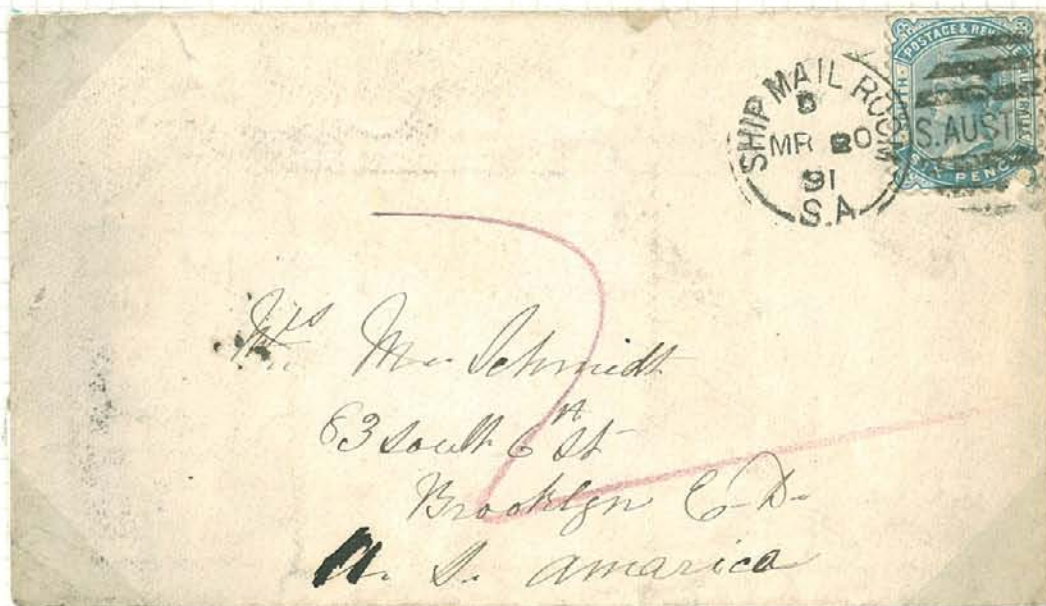 SHIP MAIL ROOM
D
MR 20
91
S.A.
POSTAGE & REVENUE
SOUTH AUSTRALIA
SIX PENCE
S. AUST
Mrs M. Schmidt
63 South 6th St
Brooklyn E. D.
U. S. Amarica